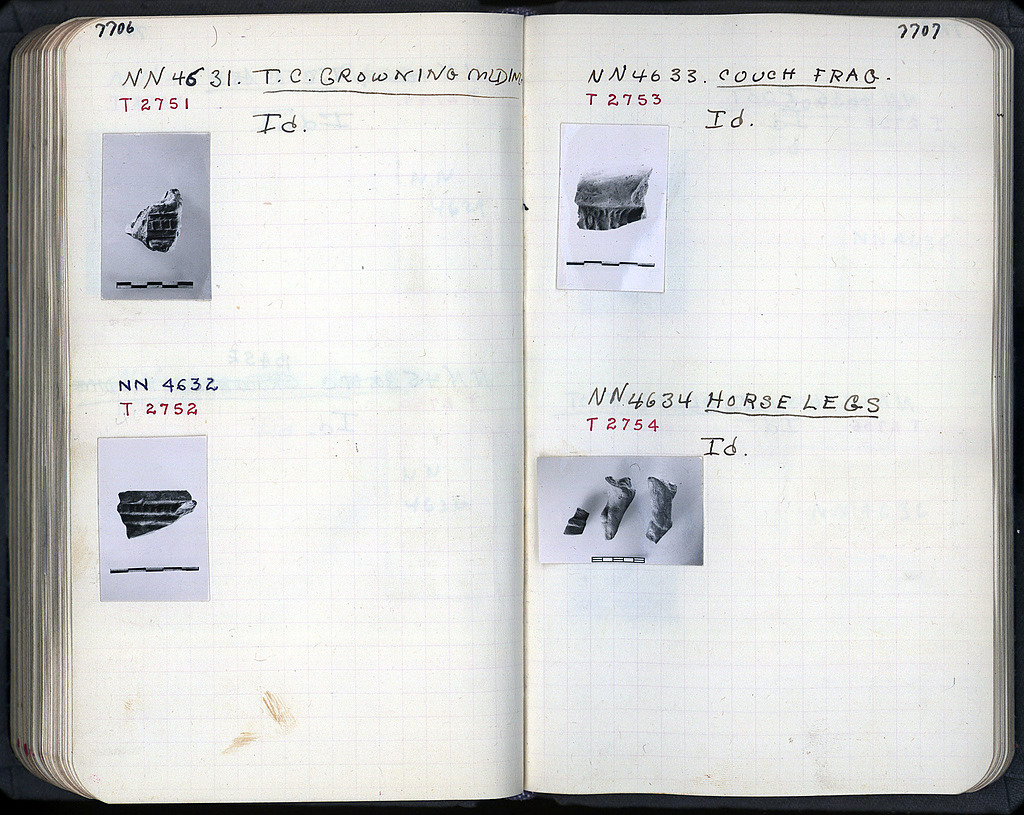 7706
NN 4631. T.C. CROWNING MLDING
T 2751
Id.
NN 4632
T 2752
7707
NN 4633. COUCH FRAG.
T 2753
Id.
NN 4634 HORSE LEGS
T 2754
Id.